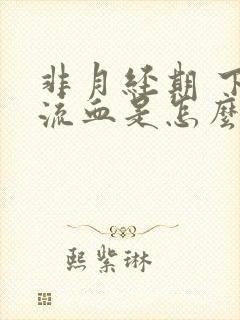 非月经期 下
流血是怎麼
熙紫琳